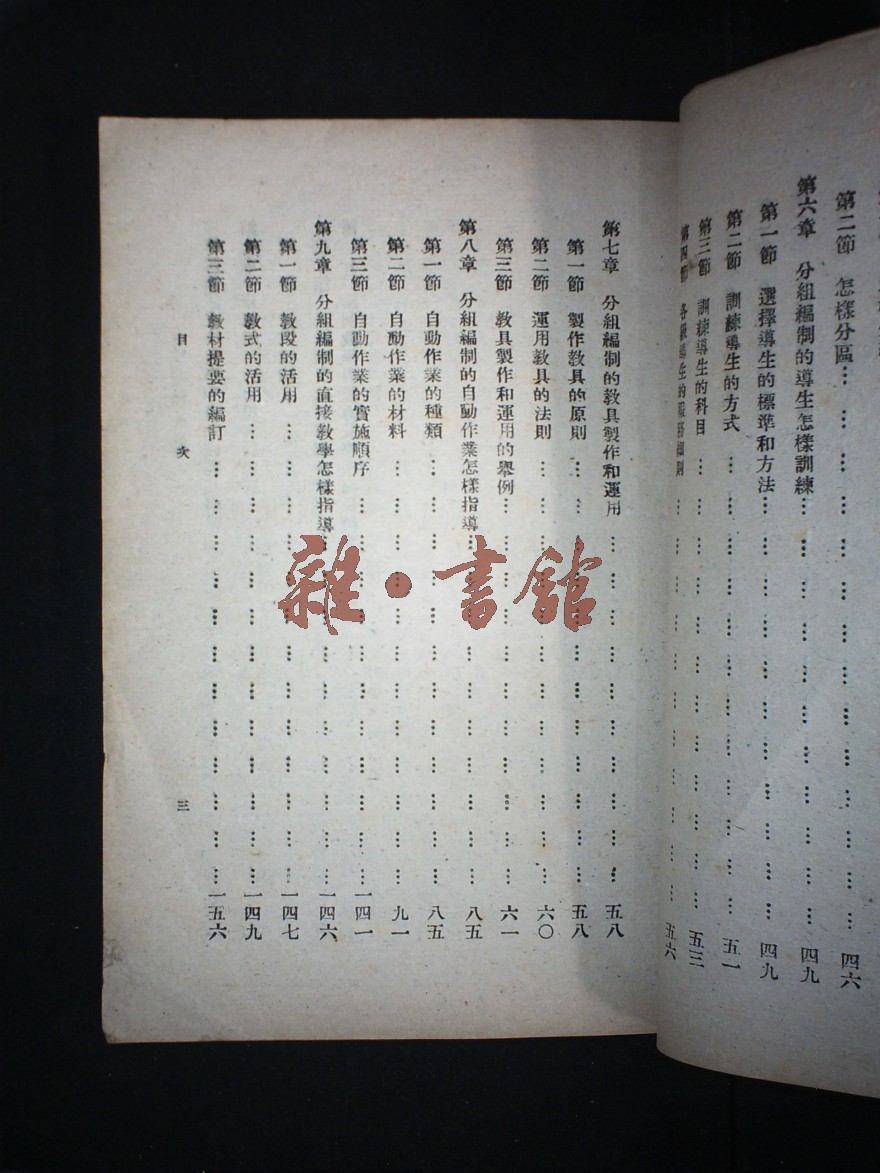 第二節　怎樣分區…………四六
第六章　分組編制的導生怎樣訓練…………四九
第一節　選擇導生的標準和方法…………四九
第二節　訓練導生的方式…………五一
第三節　訓練導生的科目…………五三
第四節　各級導生的服務細則…………五六
第七章　分組編制的教具製作和運用…………五八
第一節　製作教具的原則…………五八
第二節　運用教具的法則…………六〇
第三節　教具製作和運用的舉例…………六一
第八章　分組編制的自動作業怎樣指導…………八五
第一節　自動作業的種類…………八五
第二節　自動作業的材料…………九一
第三節　自動作業的實施順序…………一四一
第九章　分組編制的直接教學怎樣指導…………一四六
第一節　教段的活用…………一四七
第二節　教式的活用…………一四九
第三節　教材提要的編訂…………一五六
目　次　三
雜·書館